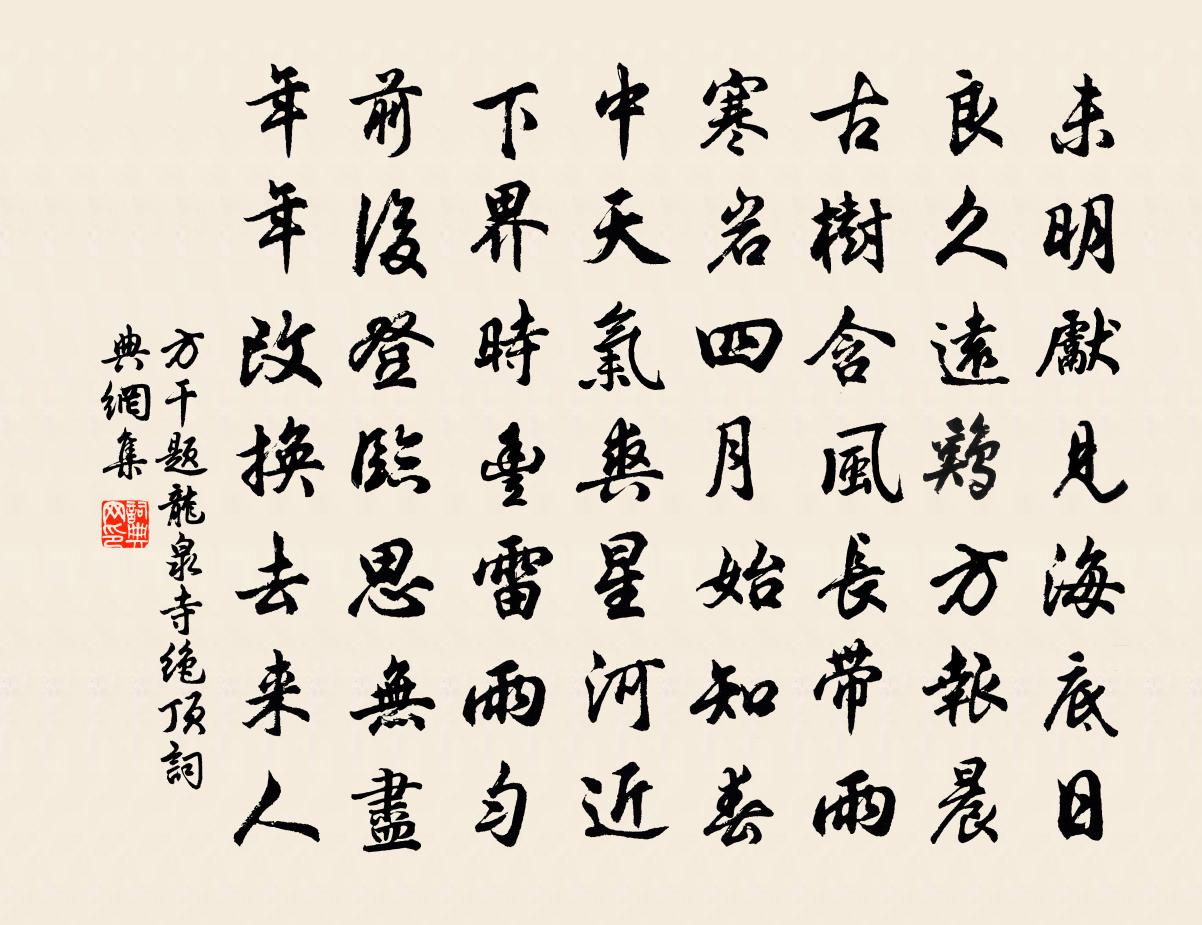 未明獻見海底日
良久遠鷄方報晨
古樹含風長帶雨
寒岩四月始知春
中天氣爽星河近
下界時豐雷雨勻
前後登臨思無盡
年年改換去來人
方干題龍泉寺絶頂詞
典網集
詞典
网印